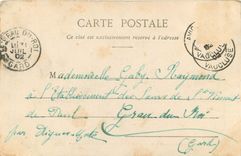 CARTE POSTALE
Ce côté est exclusivement réservé à l'adresse
GRAU-DU-ROI
JUIL
02
GARD
VAUCLUSE
Mademoiselle Gaby Raymond
à l'Etablissement des Sœurs de St Vincent
de Paul, Grau du Roi
par Aigues-
(Gard)